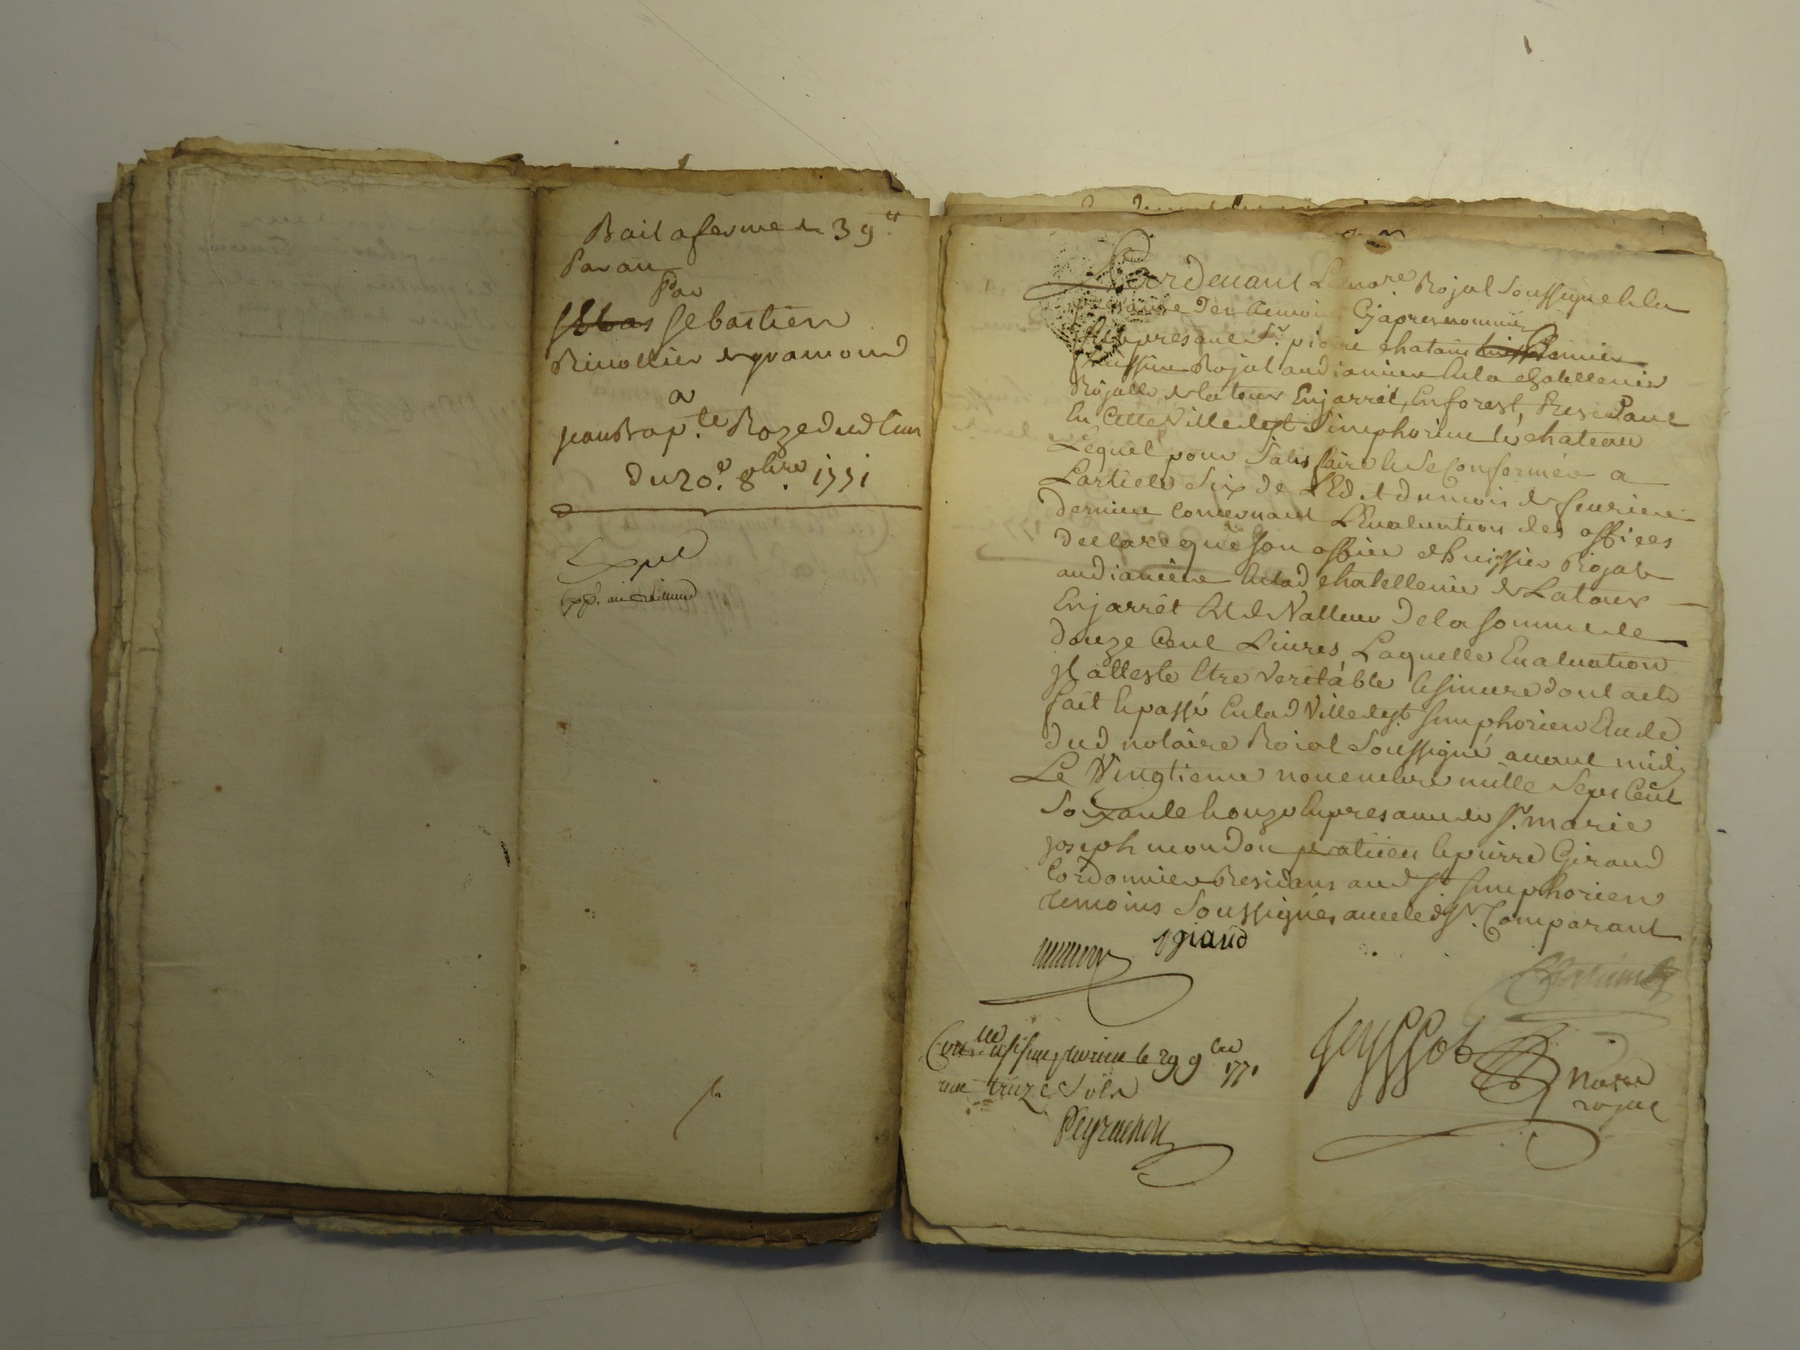 Bail a ferme de 39ᵗᵗ
Par an
Par
Sebas Sebastien
Rivollier de gramond
a
jean Bap.te Roze dud lieu
du 20.e 8bre. 1771
Expé
Par devant Le no.re Royal Soussigné & En
presance des temoins Cy apres nommés
fut present Sr. pierre chatain premier
huissier Royal audiancier En la chatellenie
Royalle de latour Enjarrêt, En forest, Residant
En Cette Ville de st Simphorien le chateau
Lequel pour Satisfaire & Se Conformér a
L'article Six de L'Edit du mois de feurier
dernier Concernant L'Evaluation des offices
declare que Son office d'huissier Royal
audiancier En lad chatellenie de Latour
Enjarrêt Est de Valleur de la Somme de
douze Cent Livres Laquelle Evaluation
jl atteste Etre veritáble & Sincere dont acte
fait & passé En lad Ville de st Simphorien Etude
dud notaire Roial Soussigné avant midy
Le Vingtieme novembre mille Sept Cent
Soixante & onze En presance de Sr. marie
joseph mondon praticien & pierre Giraud
Cordonnier Residans aud St. Simphorien
temoins Soussignés avec led Sr. Comparant
giraud
Con.lé a St Simphorien le 29 9bre 1771
reçu treize Sols
Peyrachon
Jeyssot No.re
royal